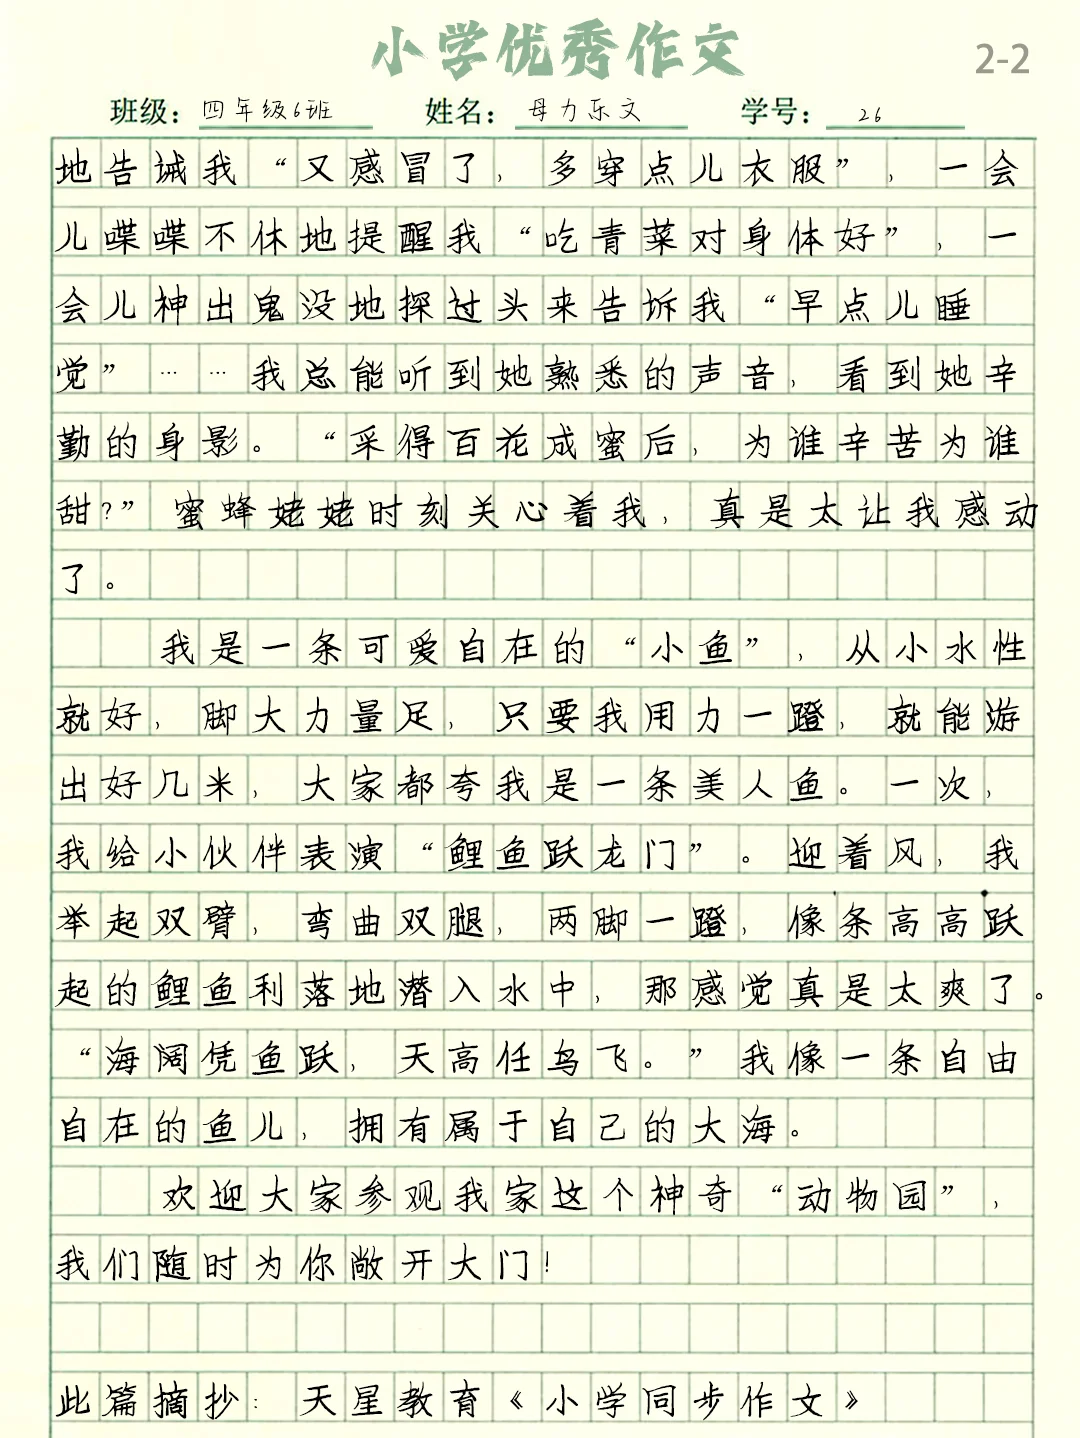 小学优秀作文
2-2
班级：四年级6班 姓名：母力乐文 学号：26
地告诫我“又感冒了，多穿点儿衣服”，一会
儿喋喋不休地提醒我“吃青菜对身体好”，一
会儿神出鬼没地探过头来告诉我“早点儿睡
觉”……我总能听到她熟悉的声音，看到她辛
勤的身影。“采得百花成蜜后，为谁辛苦为谁
甜?”蜜蜂姥姥时刻关心着我，真是太让我感动
了。
我是一条可爱自在的“小鱼”，从小水性
就好，脚大力量足，只要我用力一蹬，就能游
出好几米，大家都夸我是一条美人鱼。一次，
我给小伙伴表演“鲤鱼跃龙门”。迎着风，我
举起双臂，弯曲双腿，两脚一蹬，像条高高跃
起的鲤鱼利落地潜入水中，那感觉真是太爽了。
“海阔凭鱼跃，天高任鸟飞。”我像一条自由
自在的鱼儿，拥有属于自己的大海。
欢迎大家参观我家这个神奇“动物园”，
我们随时为你敞开大门！
此篇摘抄：天星教育《小学同步作文》